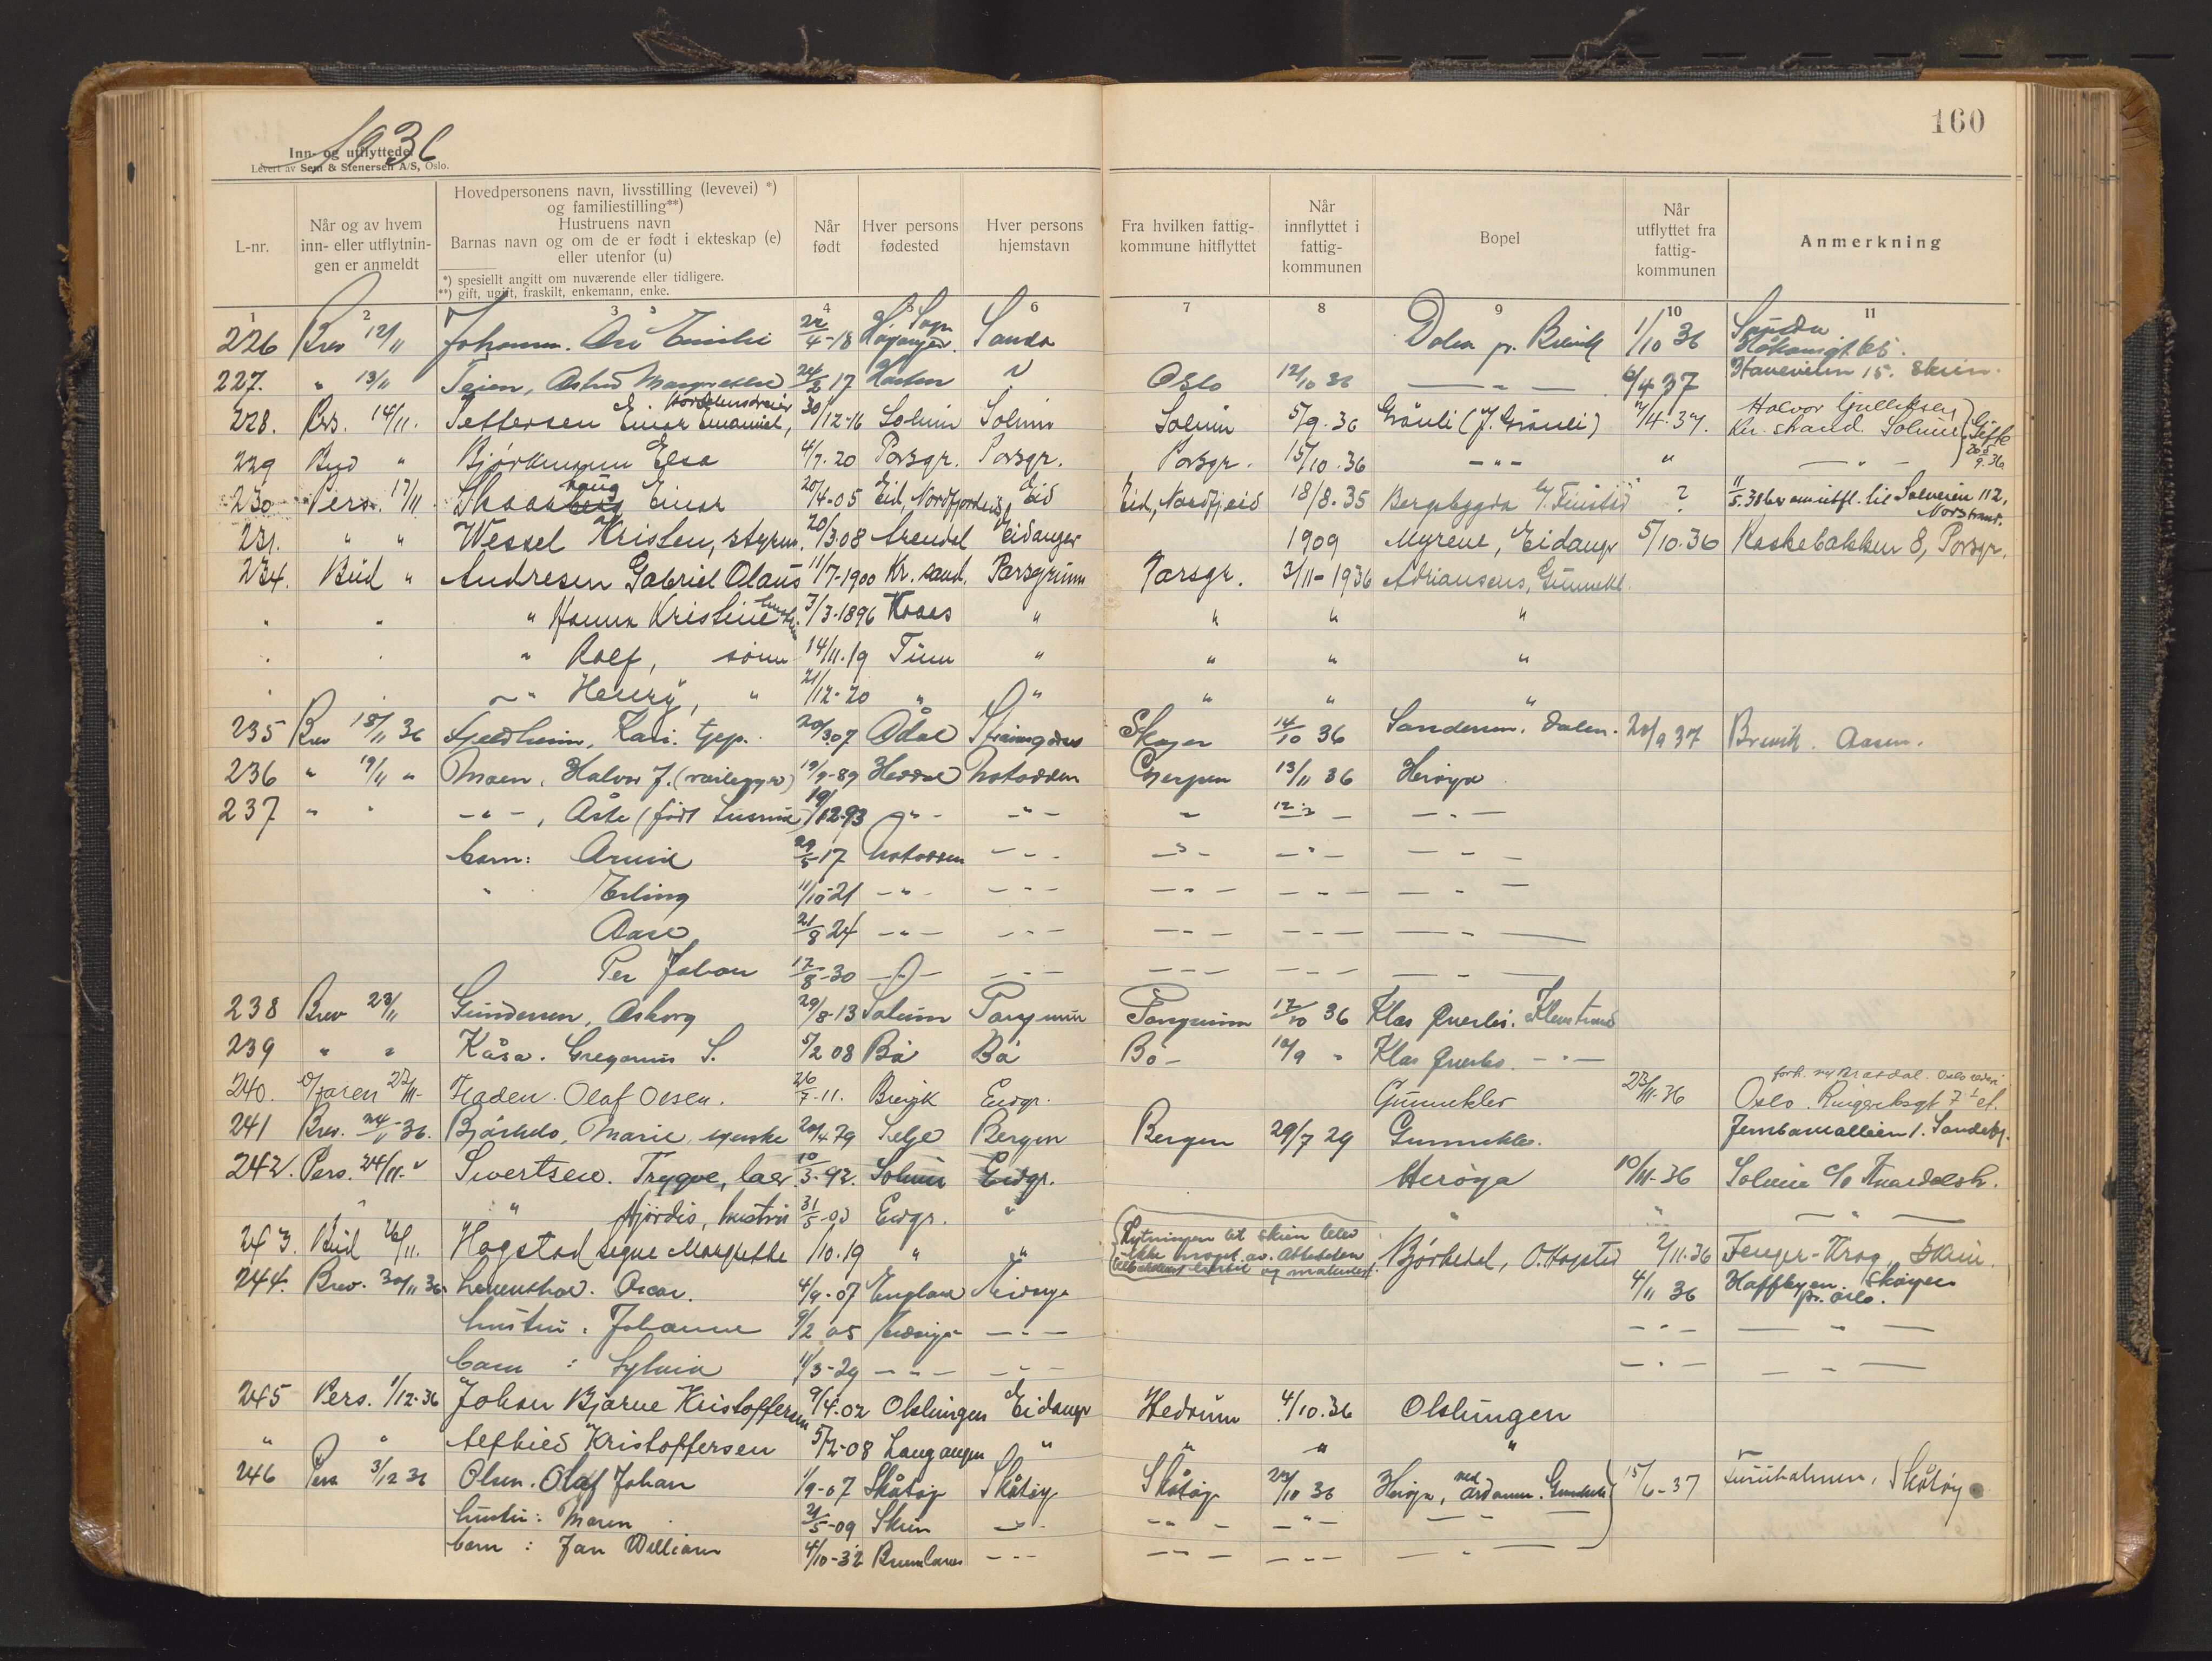 1936
160
Inn- og utflyttede.
Levert av Sem & Stenersen A/S, Oslo.
L-nr. Når og av hvem inn- eller utflytnin- gen er anmeldt Hovedpersonens navn, livsstilling (levevei) *) og familiestilling**) Hustruens navn Barnas navn og om de er født i ekteskap (e) eller utenfor (u) Når født Hver persons fødested Hver persons hjemstavn Fra hvilken fattig- kommune hitflyttet Når innflyttet i fattig- kommunen Bopel Når utflyttet fra fattig- kommunen Anmerkning
*) spesiellt angitt om nuværende eller tidligere.
**) gift, ugift, fraskilt, enkemann, enke.
1 2 3 4 5 6 7 8 9 10 11
226 Brev 12/11 Johann. Emilie 22/4-18 Høyanger Sogn Sande Dalen pr. Brevik 1/10 36
227. " 13/11 Teien, Astrid Margrethe 24/2 17 Oslo 12/10 36 — " — 6/4 37 15. Skien.
228. Pers. 14/11. Pettersen Einar Emanuel, 30/12-16 Solum Solum Solum 5/9.36 Gråuli (J. Gråuli) 4.37. Halvor Gulliksen Kr. strand. Solum Gifte
229 Bud " Bjørkmann Elsa 4/7.20 Porsgr. Porsgr. Porsgr. 15/10.36 - " - " — " — 20/9.36
230 Pers. 17/11 Skaarhaug Einar 20/4-05 Eid, Nordfjordeid Eid Eid, Nordfjeid 18/8.35 Bergsbygda ? 11/5.38 bev. om utfl. til Solveien 112, Nordstrand.
231. " " Wessel Kristen, styrm. 20/3.08 Arendal Eidanger 1909 Myrene, Eidangr 5/10.36 Raskebakken 8, Porsgr.
234. Bud " Andresen Gabriel Olaus 11/7-1900 Kr. sand. Porsgrunn Porsgr. 3/11-1936 Adriansens, Gunnekl.
" " " Hanna Kristine hustru 7/3-1896 " " " "
" " " Rolf, sønn 14/11.19 Tinn " " " "
" " Henry, " 21/12-20 " " " " "
235 Brev 18/11 36 Fjeldheim, Kari. Gep. 20/3 07 Ådal Skoger 14/10 36 Sandersen. Dalen. 20/9 37 Brevik. Aasen.
236 " 19/11 " Moen, Halvor J. 19/9-89 Heddal Notodden Gjerpen 13/11 36 Herøya
237 " " -"-, Åste (født 19/12-93 -"- -"- " 12 — -"-
barn: Arvid 29/5 17 Notodden -"- -"- -"- -"-
" Erling 11/10 21 -"- -"- -"- -"- -"-
Aase 21/8 24 -"- -"- -"- -"- -"-
Per Johan 17/8-30 -"- -"- -"- -"- -"-
238 Brev 23/11 Gundersen, Asborg 29/8-13 Solum Porsgrunn Porsgrunn 17/10 36 Klas
239 " " Kåsa. Gregorius S. 5/2 08 Bø Bø Bø 10/9 " Klas -"-
240. Flaten. Olaf Olsen. 26/7-11. Brevik Eidgr. Gunneklev 23/11-36 Oslo.
241 Brev. 24/11-36. Bjørkelo, Marie 20/4 79 Selje Bergen Bergen 29/7 29 Gunneklev. Jernbanealleen 1. Sandefj.
242. Pers. 24/11. " Sivertsen. Trygve, 10/3-92. Solum Eidgr. Herøya 10/11-36 Solum
" " Hjørdis, hustru 31/5-03 Eidgr. " " " — " —
243. Bud 26/11. Hogstad Signe Margrethe /10.19 " " Flytningen til Skien blev ikke noget av. Bjørkedal, O. Hogstad 2/11.36 Fenger-Krog, Skien.
244. Brev. 30/11 36. Løvenskol. Oscar. 4/9-07 England Eidanger 4/11 36 Skøyen pr. Oslo.
hustru: Johanne 9/2 05 Eidanger -"- -"- — " —
barn: Sylvia 11/3-29 -"- -"- -"- — " —
245 Pers. 1/12-36 Johan Bjarne Kristoffersen 9/4-02 Oklungen Eidangr Hedrum 4/10.36 Oklungen
" " Alfhild Kristoffersen 5/2-08 Langangen " " " "
246 Pers 3/12 36 Olsen. Olaf Johan 1/9-07 Skåtøy Skåtøy Skåtøy 23/10 36 Herøya, 15/6-37 Furuholmen, Skåtøy
hustru: Maren 21/5-09 Skien -"- -"- -"- -"-
barn: Jan William 4/10-32 Brunlanes -"- -"- -"- -"-